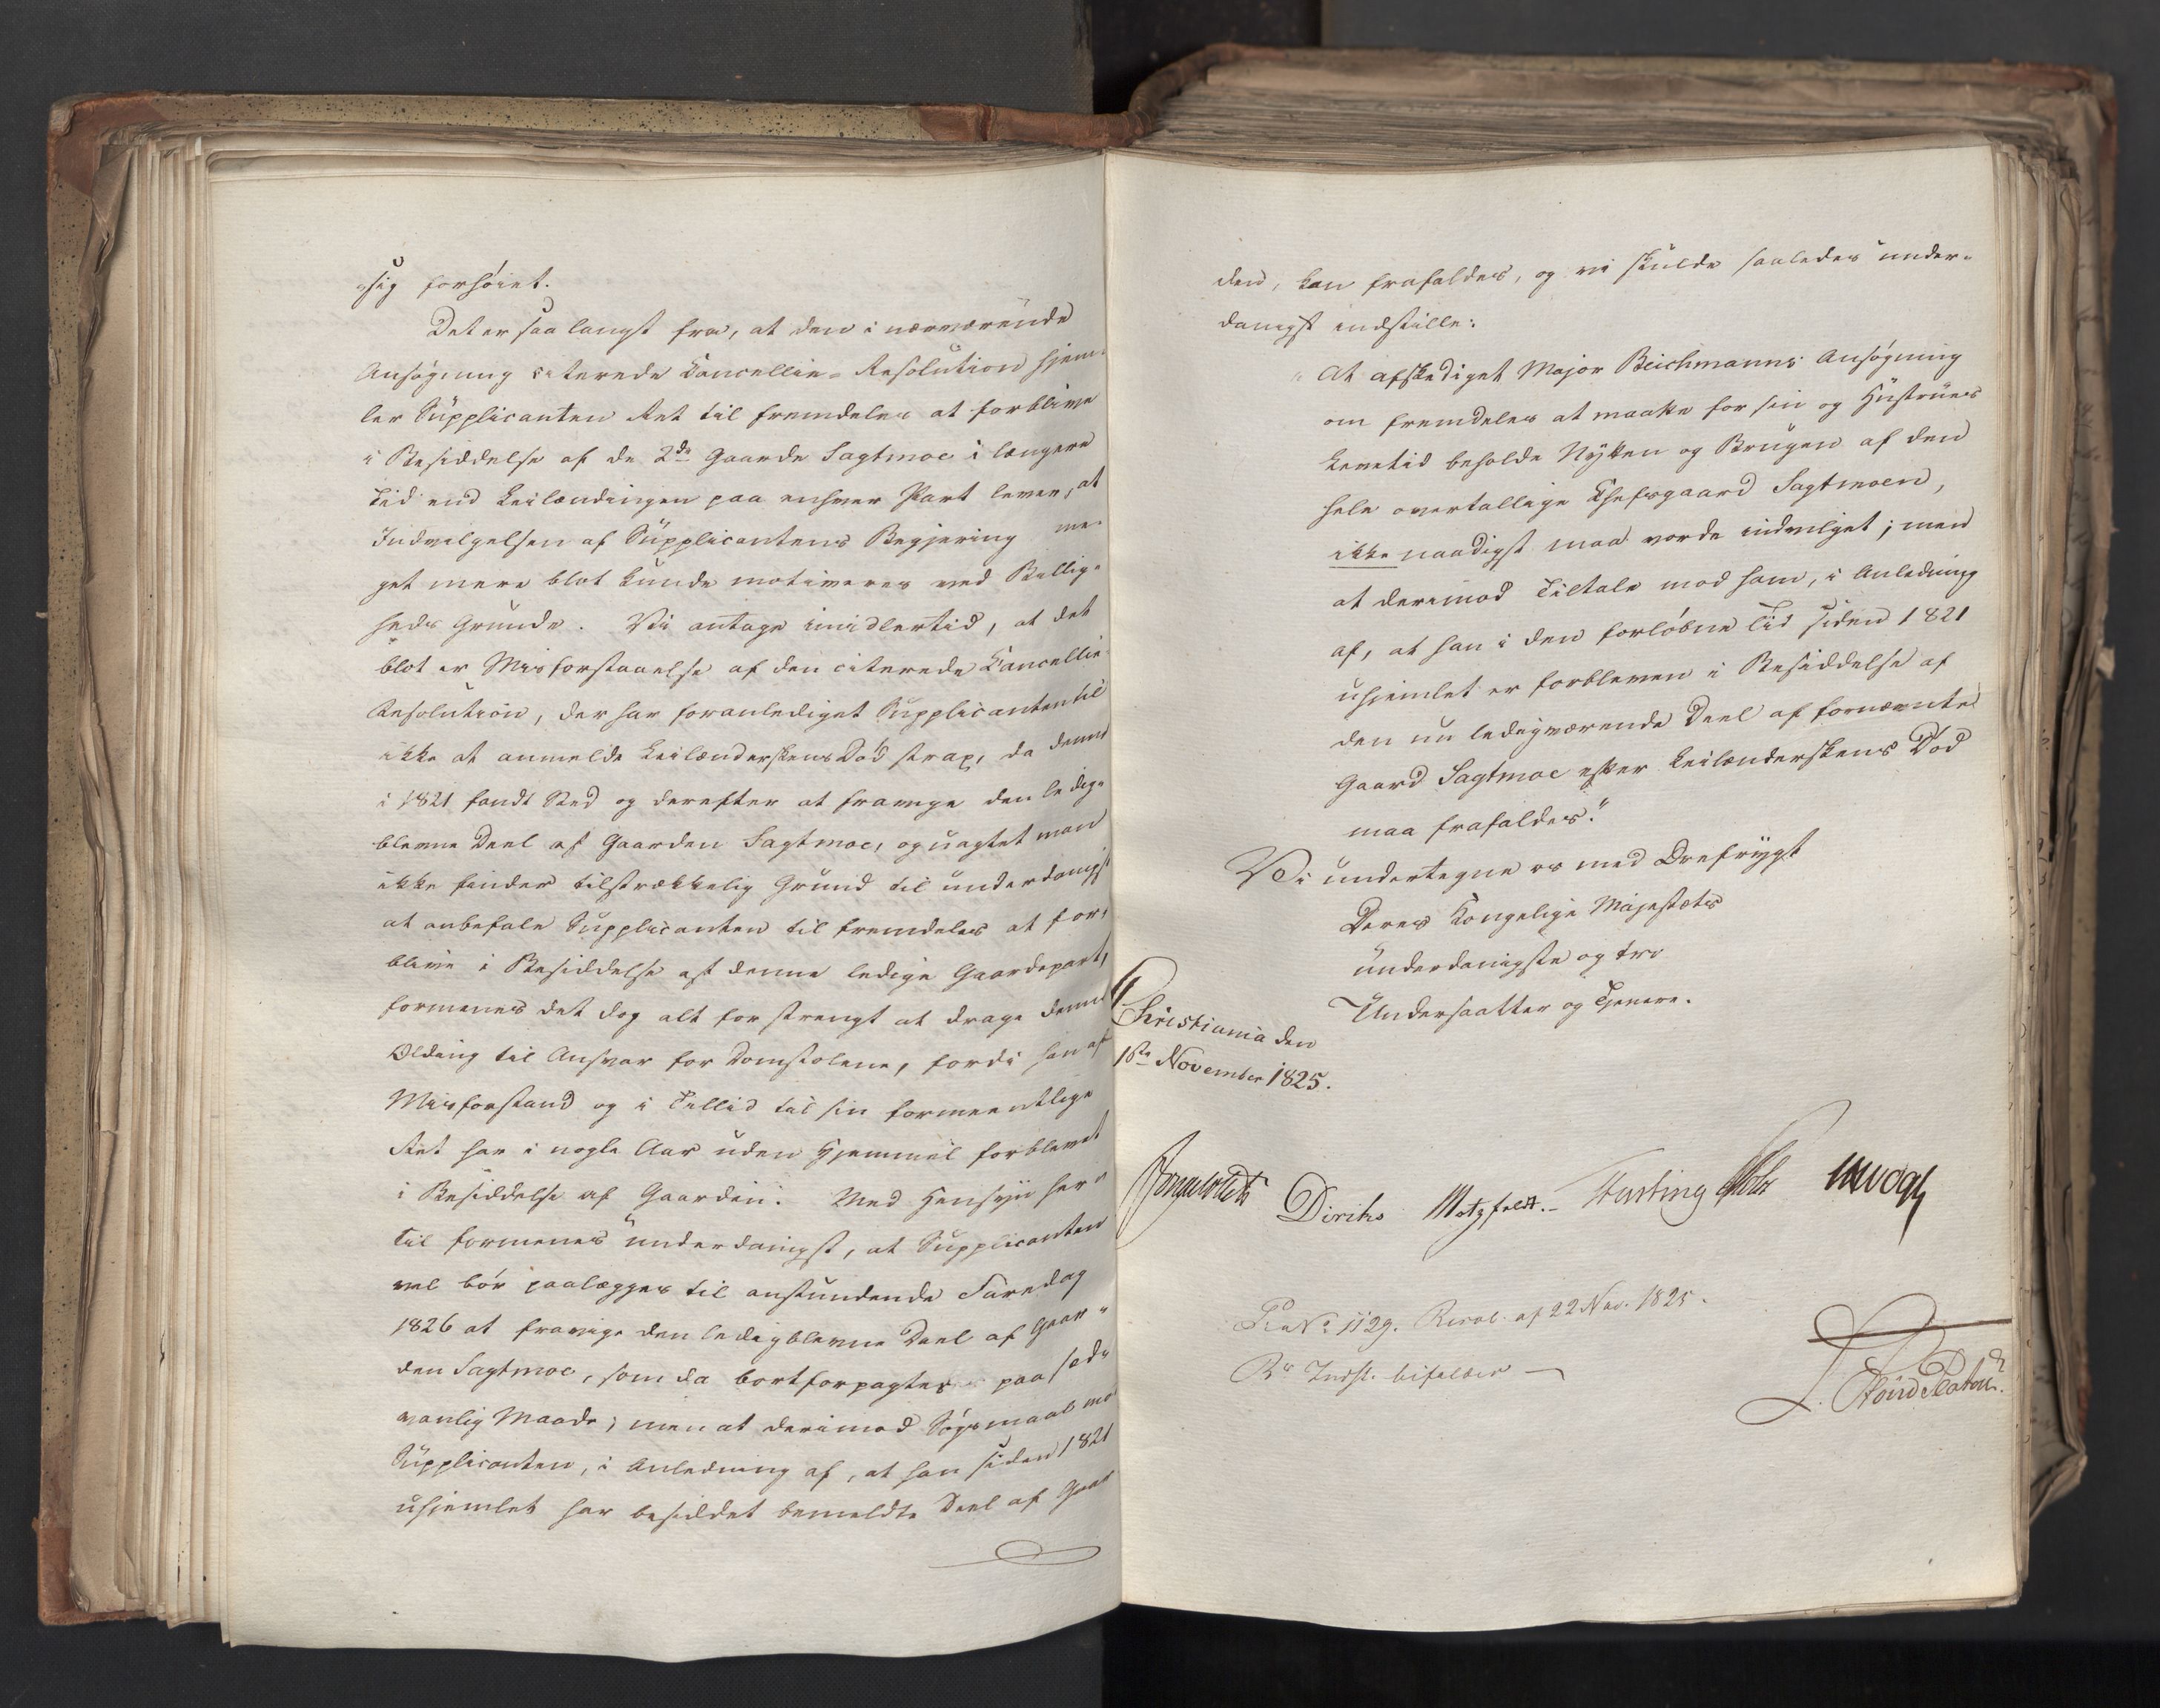 sig forhöiet.
Det er saa langt fra, at den i nærværende
Ansögning citerede Cancellie-Resolution hjem-
ler Supplicanten Ret til fremdeles at forblive
i Besiddelse af de 2de Gaarde Sagtmoe i længere
Tid end Leilændingen paa enhver Part lever, at
Indvilgelsen af Supplicantens Begjering me-
get mere blot kunde motiveres ved Billig-
heds Grunde. Vi antage imidlertid, at det
blot er Misforstaaelse af den citerede Cancellie
Resolution, der har foranlediget Supplicanten til
ikke at anmelde Leilænderskens Död strax, da denne
i 1821 fandt Sted og derefter at fravige den ledig-
blevne Deel af Gaarden Sagtmoe, og uagtet man
ikke finder tilstrækkelig Grund til underdanigst
at anbefale Supplicanten til fremdeles at for-
blive i Besiddelse af denne ledige Gaardepart,
formenes det dog alt for strengt at drage denne
Olding til Ansvar for Domstolene, fordi han af
Misforstand og i Tillid til sin formeentlige
Ret har i nogle Aar uden Hjemmel forblevet
i Besiddelse af Gaarden. Med Hensyn her-
til formenes underdanigst, at Supplicanten
vel bör paalægges til anstundende Faredag
1826 at fravige den ledigblevne Deel af Gaar-
den Sagtmoe, som da bortforpagtes paa sæd-
vanlig Maade; men at derimod Sögsmaal mod
Supplicanten, i Anledning af, at han siden 1821
uhjemlet har besiddet bemeldte Deel af Gaar
den, kan frafaldes, og vi skulde saaledes under-
danigst indstille:
"At afskediget Major Beichmanns Ansögning
om fremdeles at maatte for sin og Hustrues
Levetid beholde Nytten og Brugen af den
hele overtallige Chefsgaard Sagtmoen,
ikke naadigst maa vorde indvilget; men
at derimod Tiltale mod ham, i Anledning
af, at han i den forlöbne Tid siden 1821
uhjemlet er forbleven i Besiddelse af
den nu ledigværende Deel af fornævnte
Gaard Sagtmoe efter Leilænderskens Död
maa frafaldes."
Vi undertegne os med Ærefrygt
Deres Kongelige Majestæts
underdanigste og tro
Undersaatter og Tjenere.
Christiania den
1ste November 1825.
Diriks Motzfeldt. Fasting
Pro No 1129. Resol. af 22 Nov. 1825.
Rs Indst. bifaldes